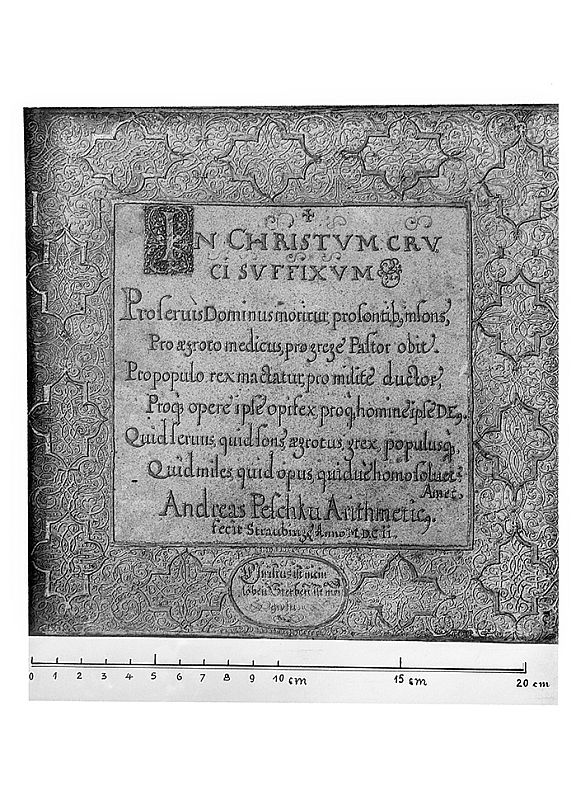 IN CHRISTVM CRV
CI SVFFIXVM
Pro servis Dominus moritur, pro sontib, insons,
Pro ægroto medicus, pro grege Pastor obit.
Pro populo rex mactatur, pro milite ductor,
Proq opere ipse opifex, proq homine ipse DE9.
Quid servus, quid sons, ægrotus, grex, populusq,
Quid miles, quid opus, quidue homo soluet?
Amet.
Andreas Peschku Arithmetic9.
fecit Straubingæ Anno
Christus ist mein
leben Sterben ist mei
gewin
0 1 2 3 4 5 6 7 8 9 10 cm 15 cm 20 cm